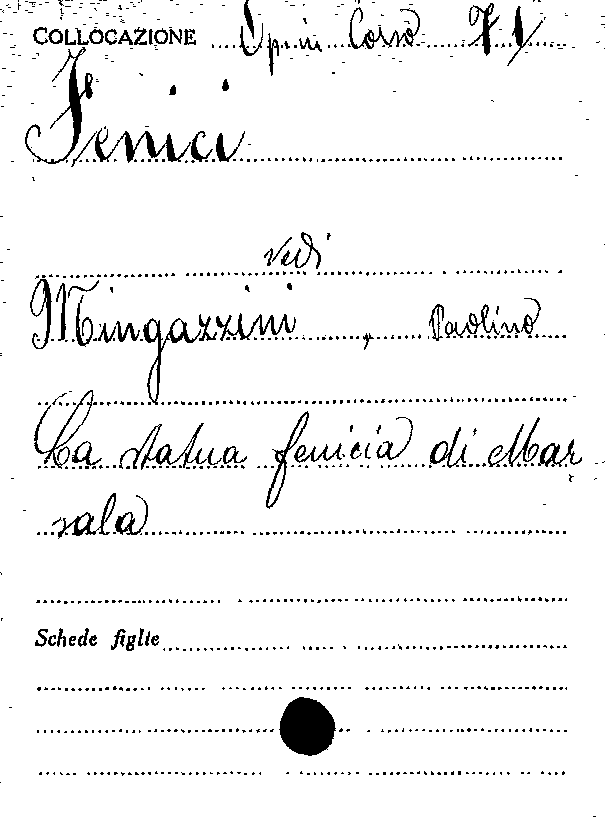 COLLOCAZIONE Opusc. Corso 71
Fenici
vedi
Mingazzini, Paolino
La statua fenicia di Mar
sala
Schede figlie